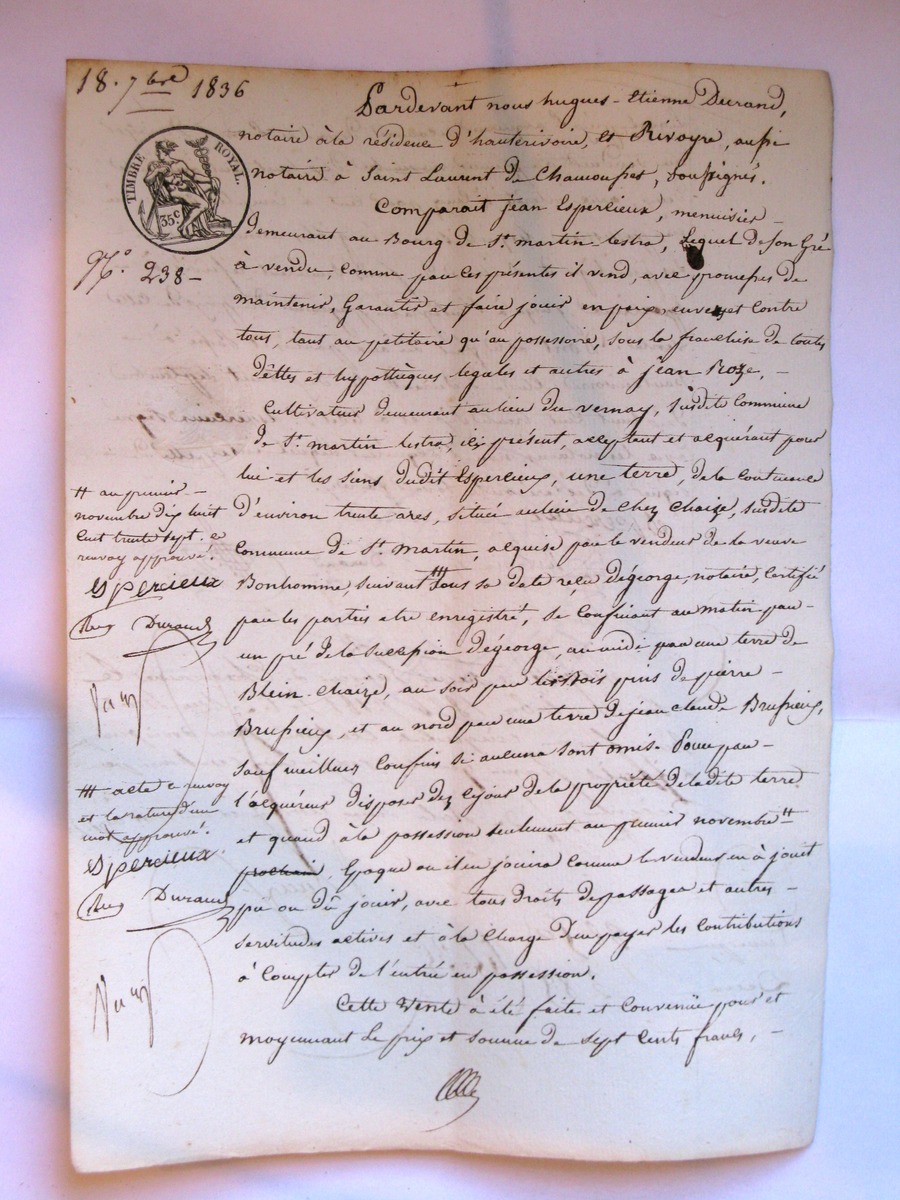 18. 7bre 1836
TIMBRE ROYAL.
35c
No. 238 –
Pardevant nous hugues-Etienne Durand,
notaire à la résidence d'hauterivoire, et Rivoyre, aussi
notaire à Saint Laurent de Chamousset, Soussignés.
Comparait jean Espercieux, menuisier –
demeurant au Bourg de St. martin-lestra, lequel de son Gré
à vendu, comme par ces présentes il vend, avec promesses de
maintenir, Garantir et faire jouir en paix, envers et contre
tous, tant au pétitoire qu'au possessoire, sous la franchise de toutes
dêttes et hypothèques legales et autres à jean Roze, –
Cultivateur demeurant au lieu du vernay, susdite Commune
de St. martin lestra, ici présent acceptant et acquérant pour
lui et les siens dudit Espercieux, une terre, de la contenance
d'environ trente ares, située au lieu de Chez Chaize, susdite
Commune de St. Martin, acquise par le vendeur de la veuve
Bonhomme, suivant ⧻ sous sa date reçu dégeorge, notaire, Certifié
par les parties etre enregistré, se Confinant au matin par –
un pré de la succession dégeorge, au midi par une terre de
Blein-Chaize, au soir par les bois pins de pierre –
Brussieux, et au nord par une terre de jean Claude Brussieux,
sauf meilleurs Confins si aucuns sont omis. Pour par –
l'acquéreur disposer dez cejour de la propriété de ladite terre
et quand à la possession seulement au premier novembre ⧺
prochain, époque où il en jouira comme le vendeur en à jouit
pû ou dû jouir, avec tous droits de passages et autres –
servitudes actives et à la Charge d'en payer les contributions
à Compter de l'entrée en possession.
Cette Vente à été faite et Convenüe pour et
moyennant le prix et somme de sept Cents francs, –
⧺ au premier –
novembre dix huit
Cent trente sept. ce
renvoy approuvé.
Espercieux
Durand
⧻ acte ce renvoy
et la rature d'un
mot approuvé.
Espercieux
Durand